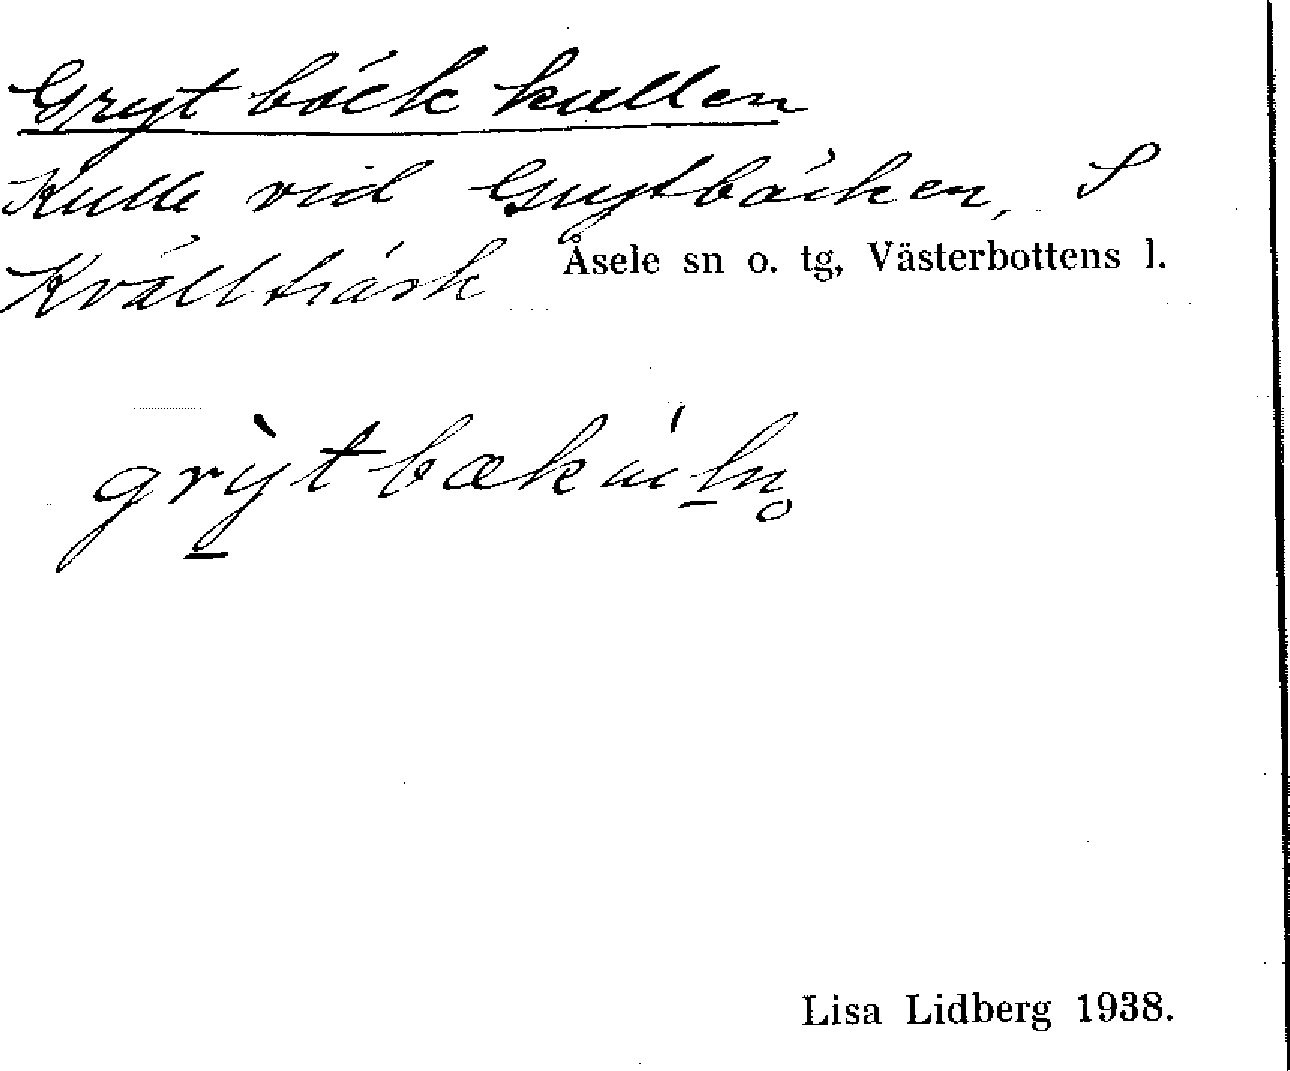 Grytbäckkullen
Kulle vid Grytbäcken, S
Kvällträsk Åsele sn o. tg, Västerbottens l.
Lisa Lidberg 1938.